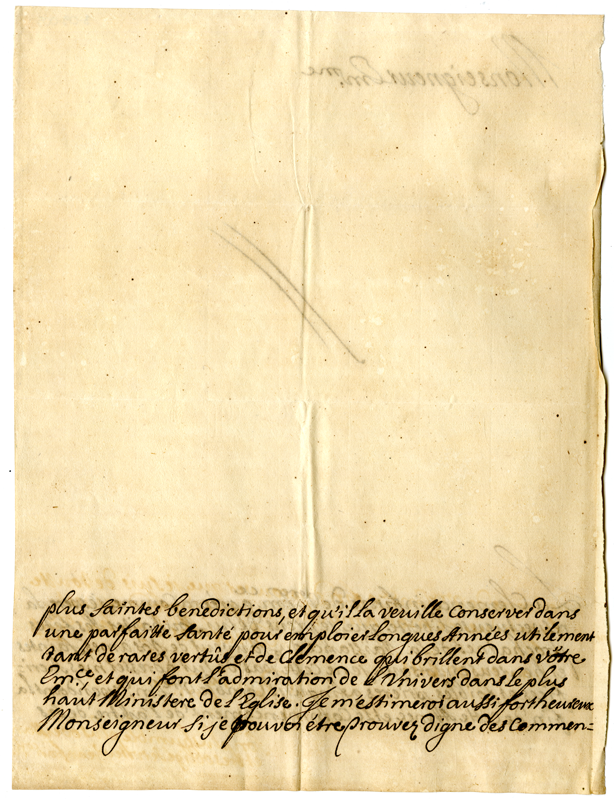 Monseigneur Em.me
plus saintes benedictions, et qu'il la veuille Conserver dans
une parfaitte santé pour emploier longues Années utilement
tant de rares vertûs et de Clemence qui brillent dans vôtre
Em.ce, et qui font l'admiration de l'Univers dans le plus
haut Ministere de l'Eglise. Je m'estimeroi aussi fort heureux
Monseigneur si je pouvoi étre prouvez digne des Commen=